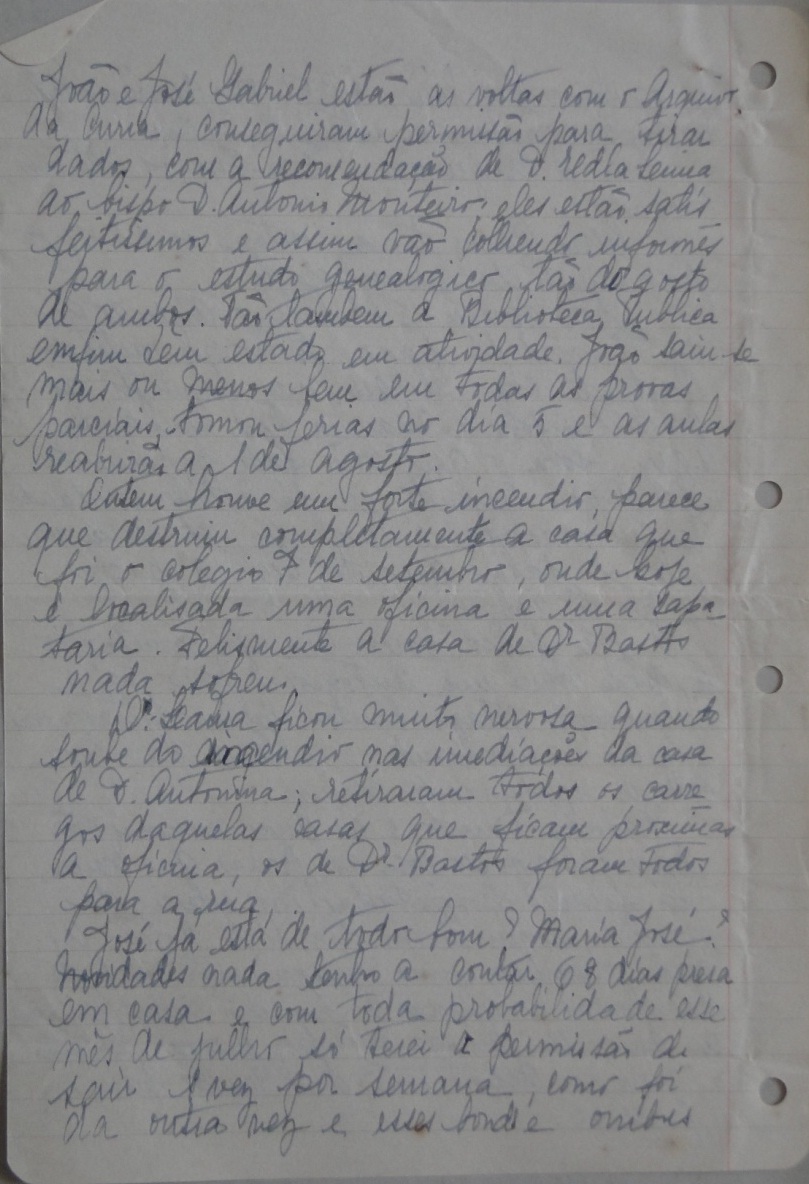 João e José Gabriel estão as voltas com o Arquivo
da Curia, conseguiram permissão para tirar
dados, com a recomendação de D.
ao bispo D. Antonio Monteiro; eles estão satis
feitissimos e assim vão colhendo informes
para o estudo genealogico tão do gosto
de ambos. Vão tambem a Biblioteca Publica
emfim tem estado em atividade. João saiu-se
mais ou menos bem em todas as provas
parciais, tomou ferias no dia 5 e as aulas
reabrirão a 1 de agosto.
Ontem houve um forte incendio, parece
que destruiu completamente a casa que
foi o colegio 7 de setembro, onde hoje
é localisada uma oficina e uma sapa
taria. Felismente a casa de Dr Bastos
nada sofreu.
ficou muito nervosa quando
soube do incendio nas imediações da casa
de D. Antonina; retiraram todos os carre
gos daquelas casas que ficam proximas
a oficina, os de Dr. Bastos foram todos
para a rua.
José já está de todo bom? Maria José?
Novidades nada tenho a contar, 68 dias presa
em casa e com toda probabilidade esse
mês de julho só terei a permissão de
sair 1 vez por semana, como foi
da outra vez e esses bonde e onibus